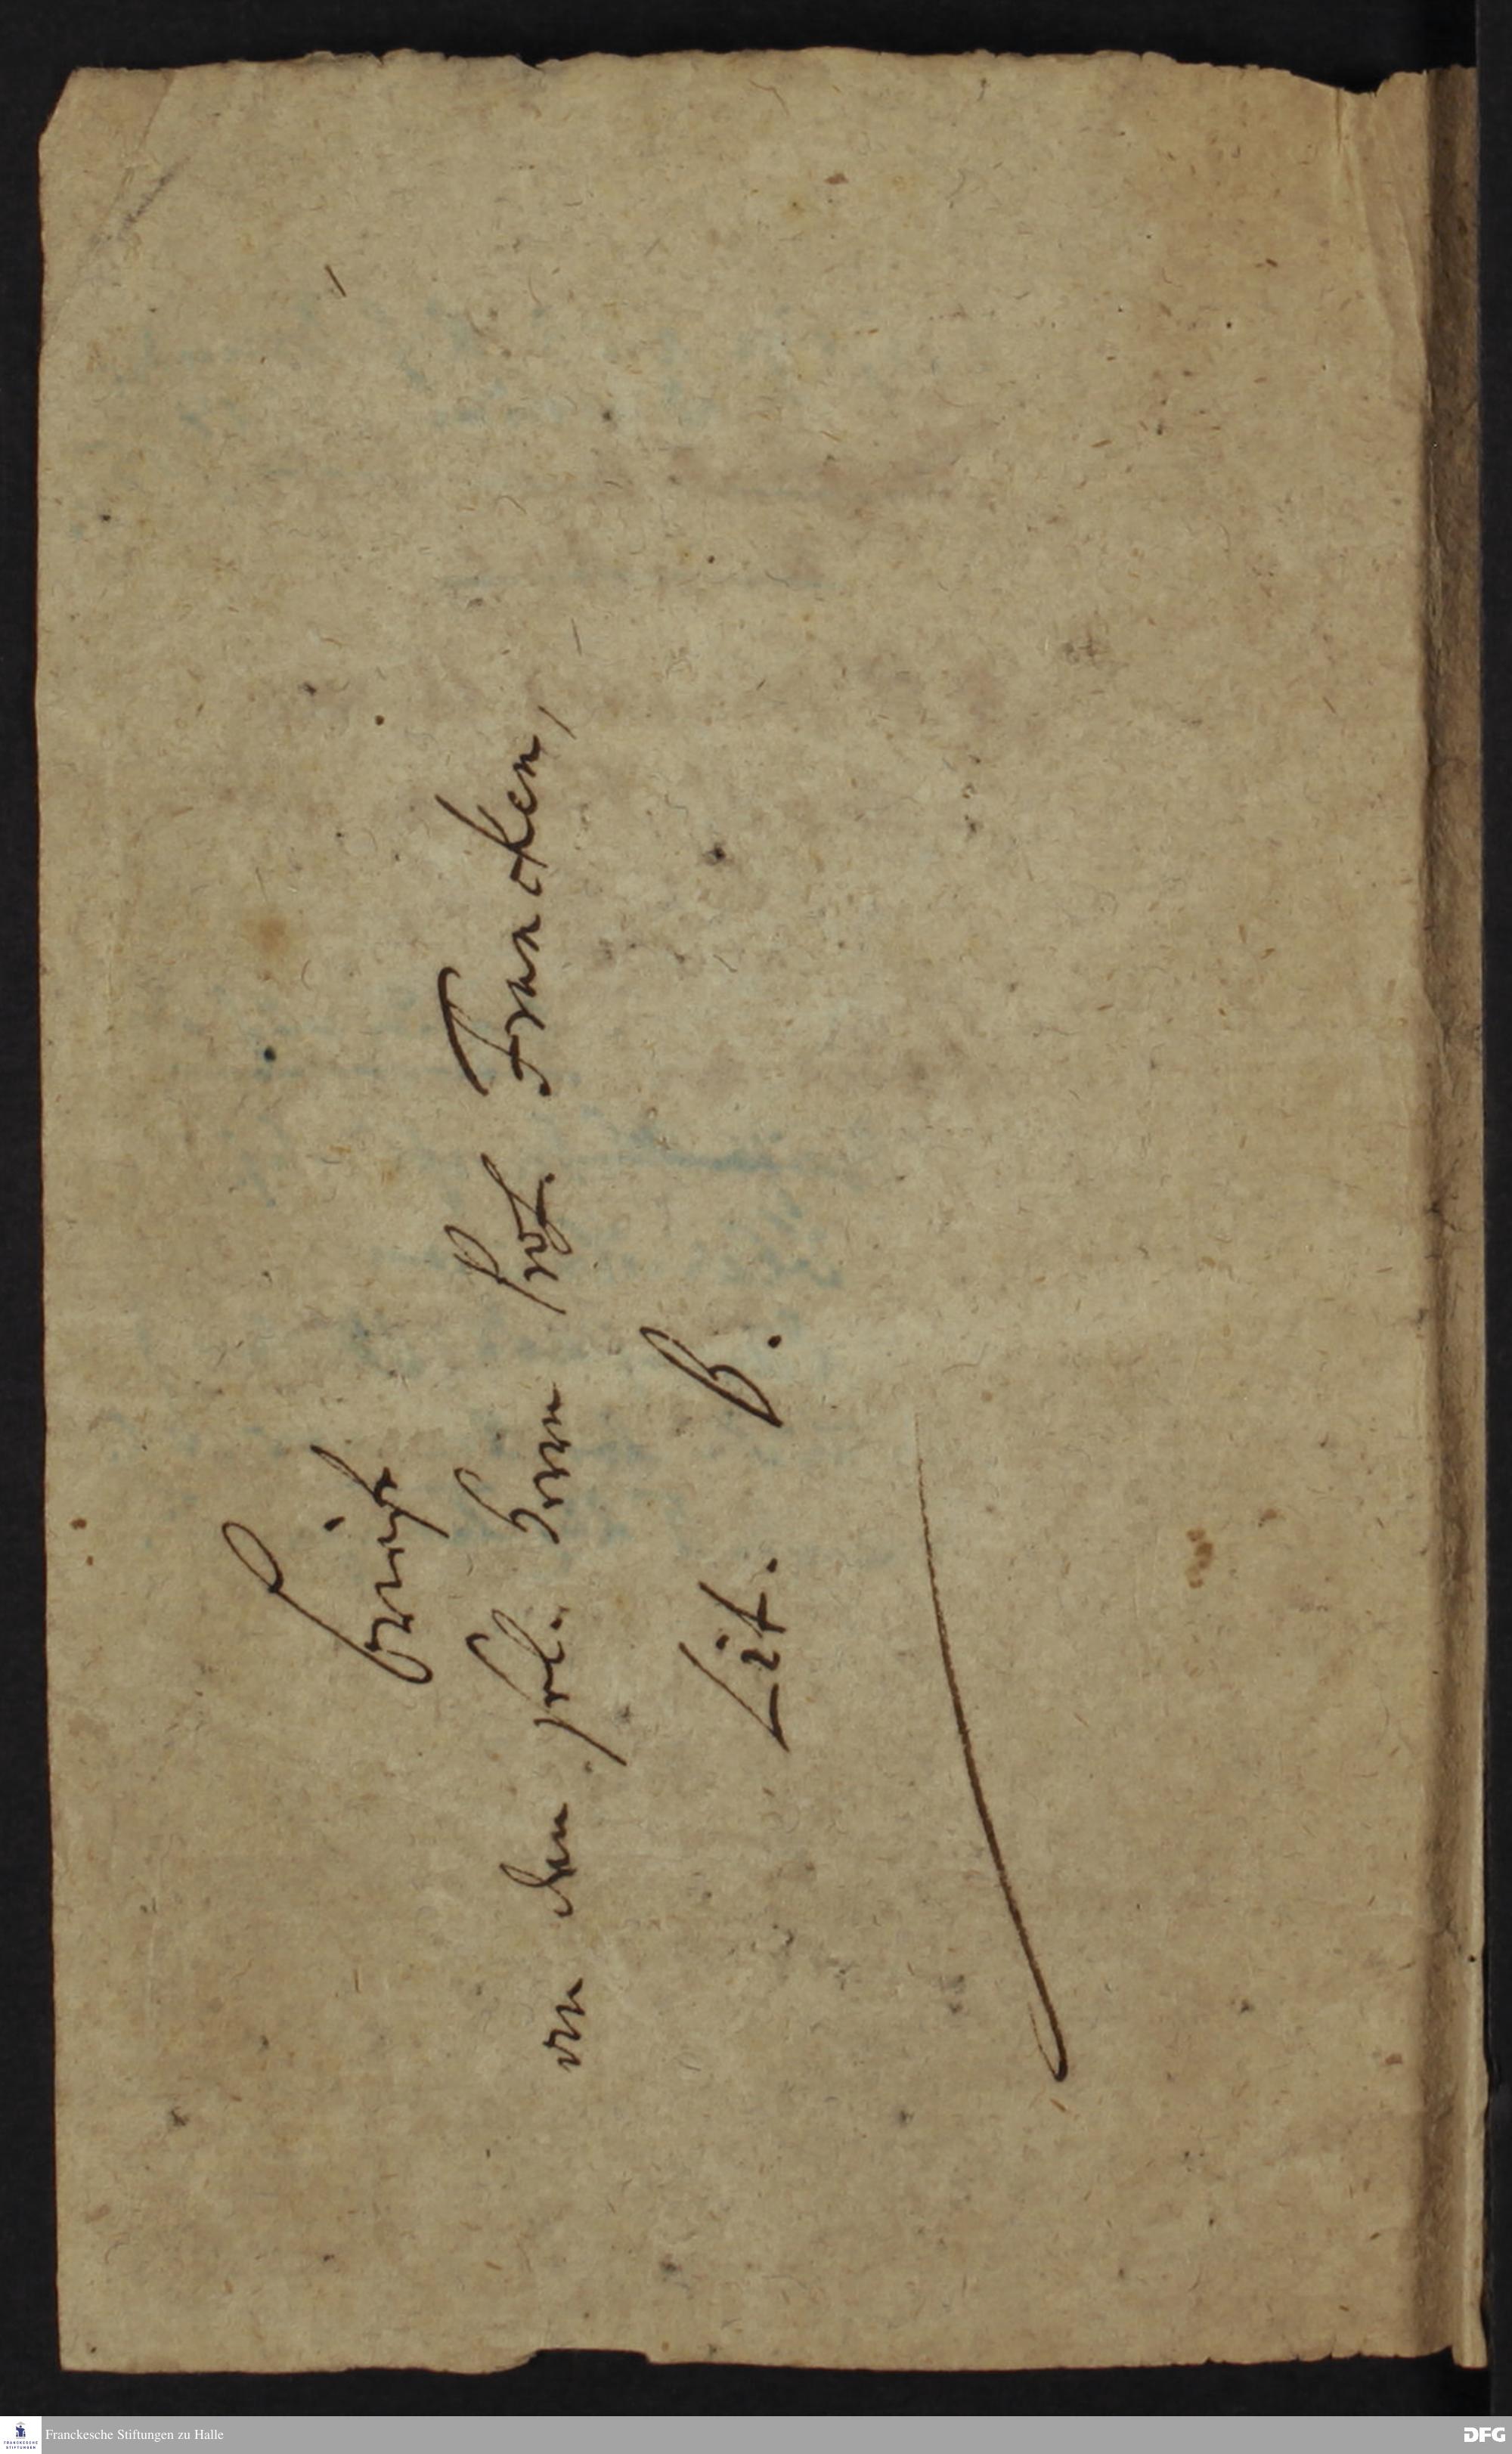 Bericht
von dem sel. Herrn Prof. Francken,
Lit. B.
FRANCKESCHE STIFTUNGEN
Franckesche Stiftungen zu Halle
DFG